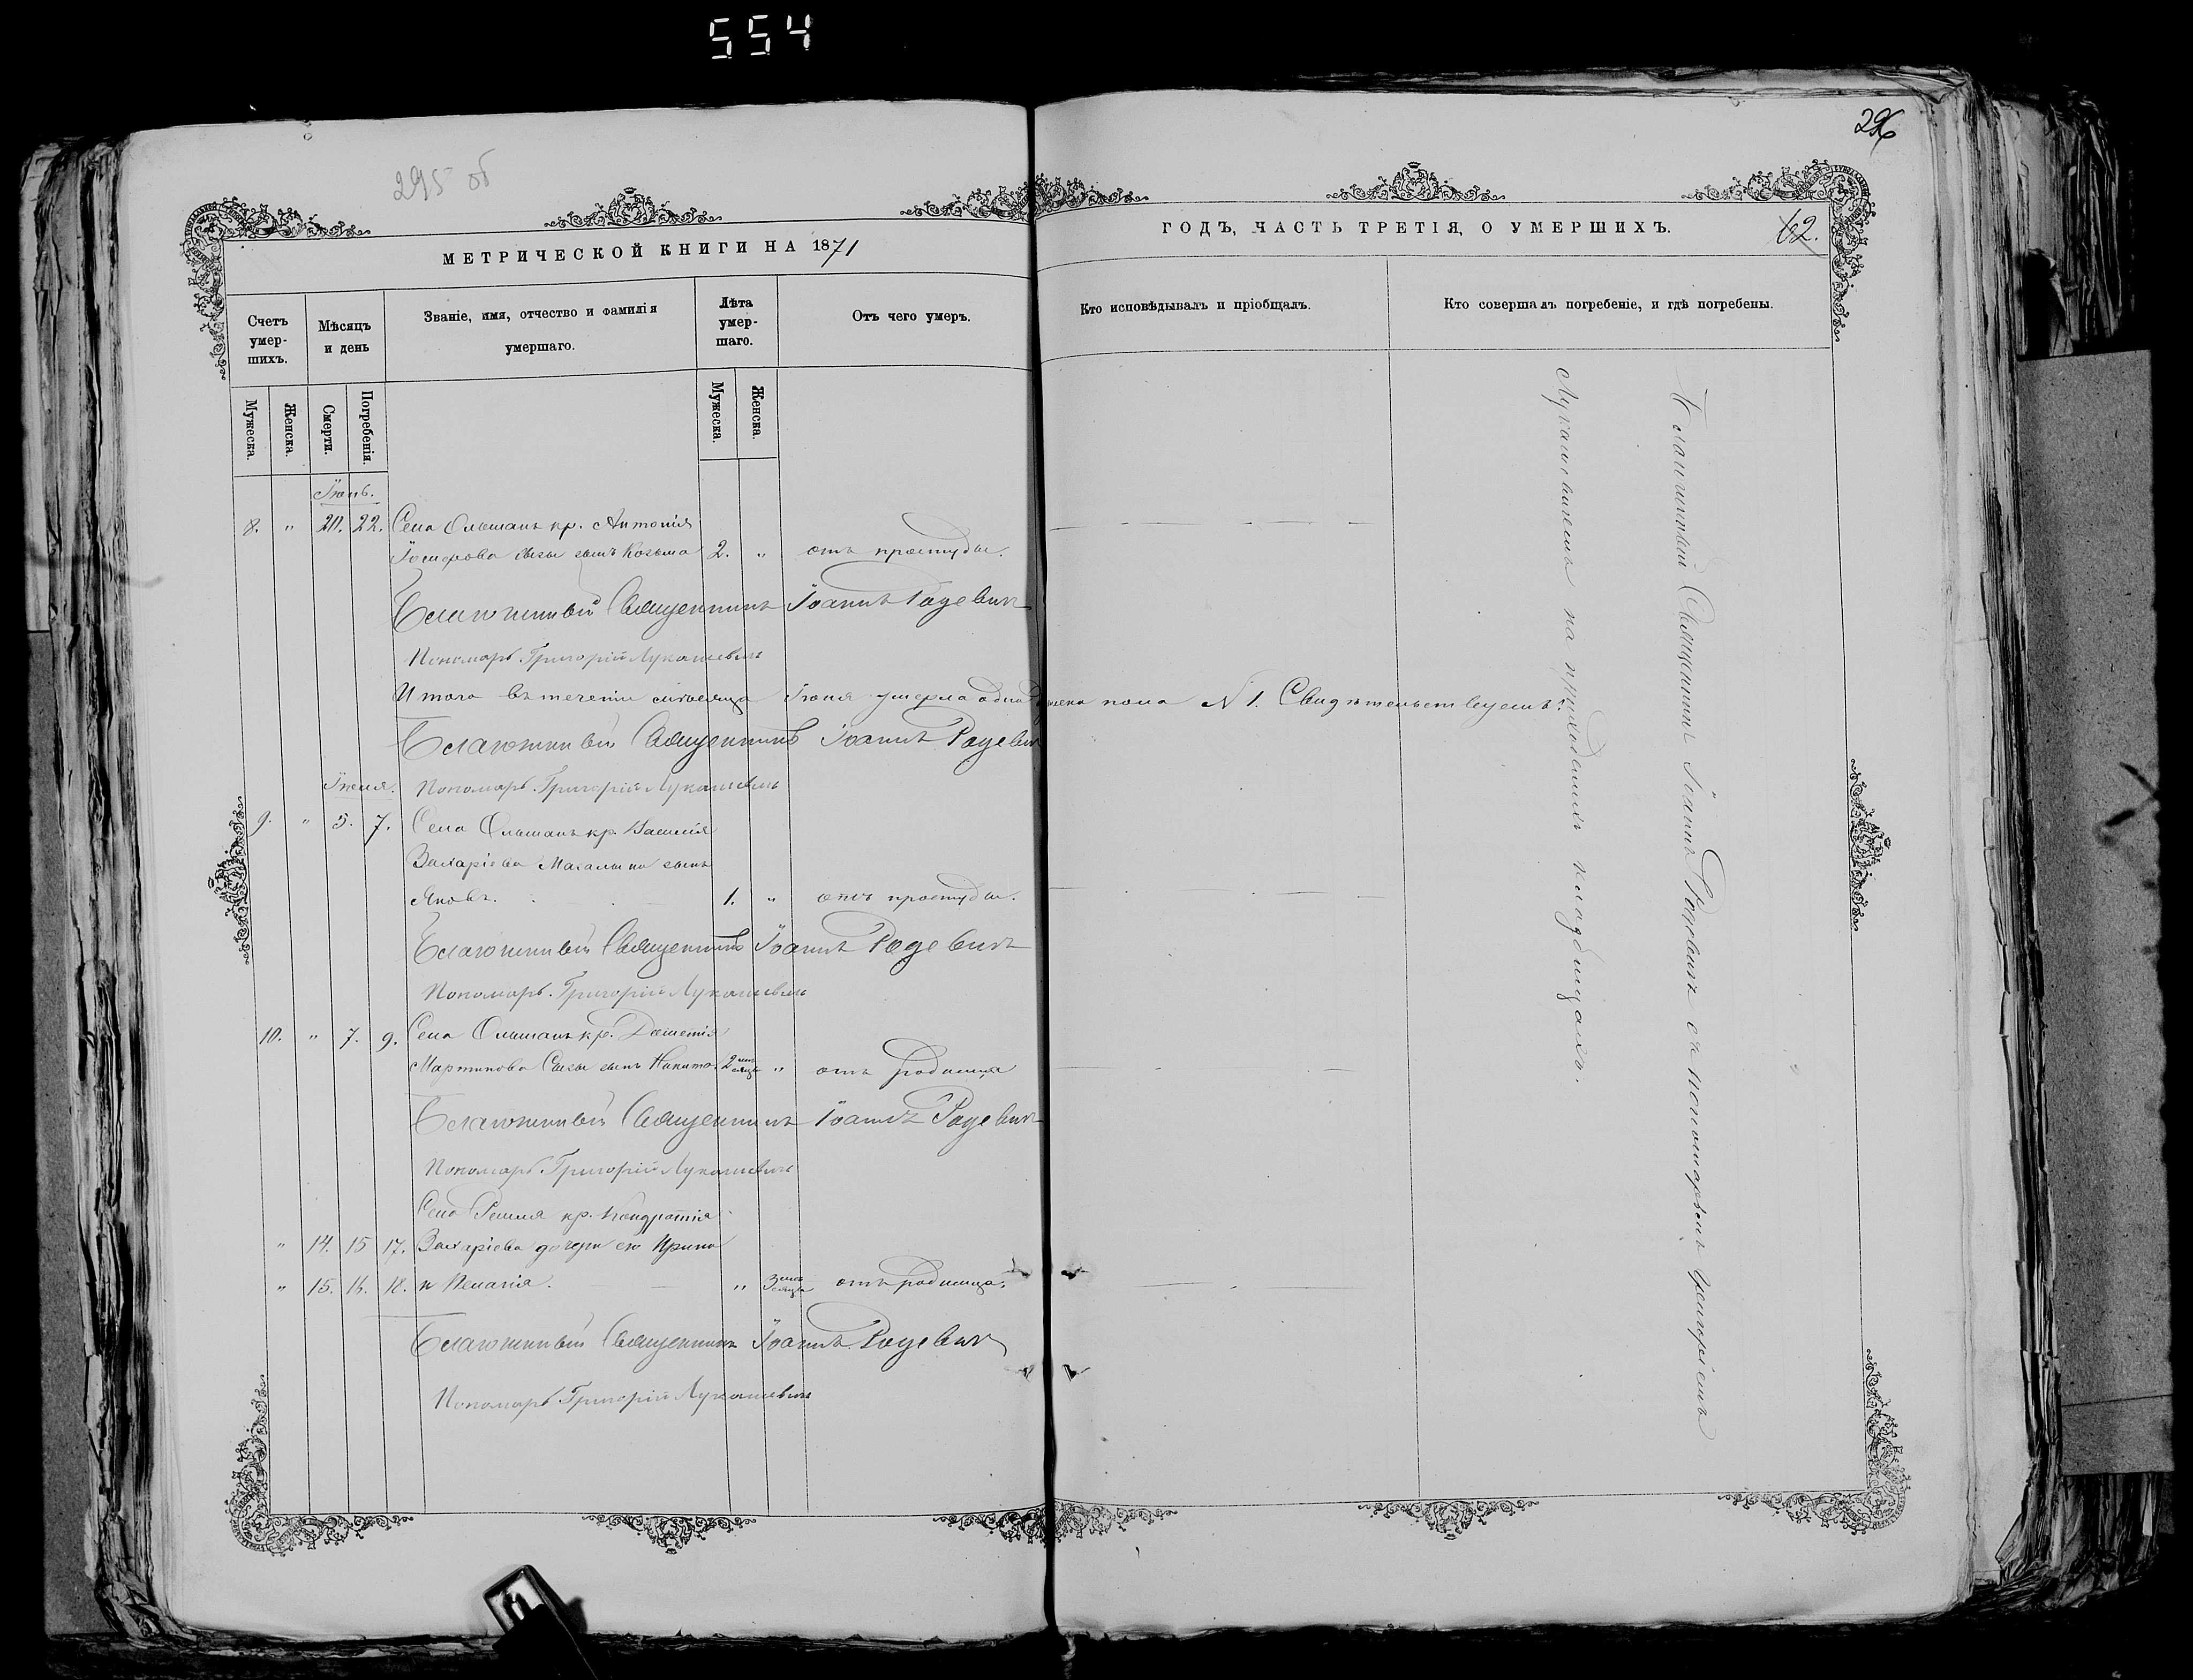 554
295 об
296
МЕТРИЧЕСКОЙ КНИГИ НА 1871
ГОДЪ, ЧАСТЬ ТРЕТІЯ, О УМЕРШИХЪ.
62.
Счетъ умер-шихъ.
Мѣсяцъ и день
Званіе, имя, отчество и фамилія умершаго.
Лѣта умер-шаго.
Отъ чего умеръ.
Кто исповѣдывалъ и пріобщалъ.
Кто совершалъ погребеніе, и гдѣ погребены.
Мужеска.
Женска.
Смерти.
Погребенія.
Мужеска.
Женска.
Іюнь.
8. " 20. 22. Села Ольшанъ кр. Антонія
сынъ Козьма 2. " отъ простуды.
Благочинный Священникъ Іоаннъ Радевичъ
Пономарь Григорій Лукашевичъ
Итого въ теченіи мѣсяца Іюня умерла одна пола № 1. Свидѣтельствуемъ:
Благочинный Священникъ Іоаннъ Радевичъ
Пономарь Григорій Лукашевичъ
9. " 5. 7. Села Ольшанъ кр. Василія
Захаріева сынъ
Яковъ. 1. " отъ простуды.
Благочинный Священникъ Іоаннъ Радевичъ
Пономарь Григорій Лукашевичъ
10. " 7. 9. Села Ольшанъ кр.
Мартинова сынъ Никита 2 мѣсяца " отъ родимца
Благочинный Священникъ Іоаннъ Радевичъ
Пономарь Григорій Лукашевичъ
Села кр. Кондратія
" 14. 15 17. Захаріева дочери его Ирина
" 15. 16. 18. и Пелагія. " 3 мѣсяца отъ родимца.
Благочинный Священникъ Іоаннъ Радевичъ
Пономарь Григорій Лукашевичъ
Благочинный Священникъ Іоаннъ Радевичъ съ пономаремъ Григоріемъ
Лукашевичемъ на кладбищахъ.